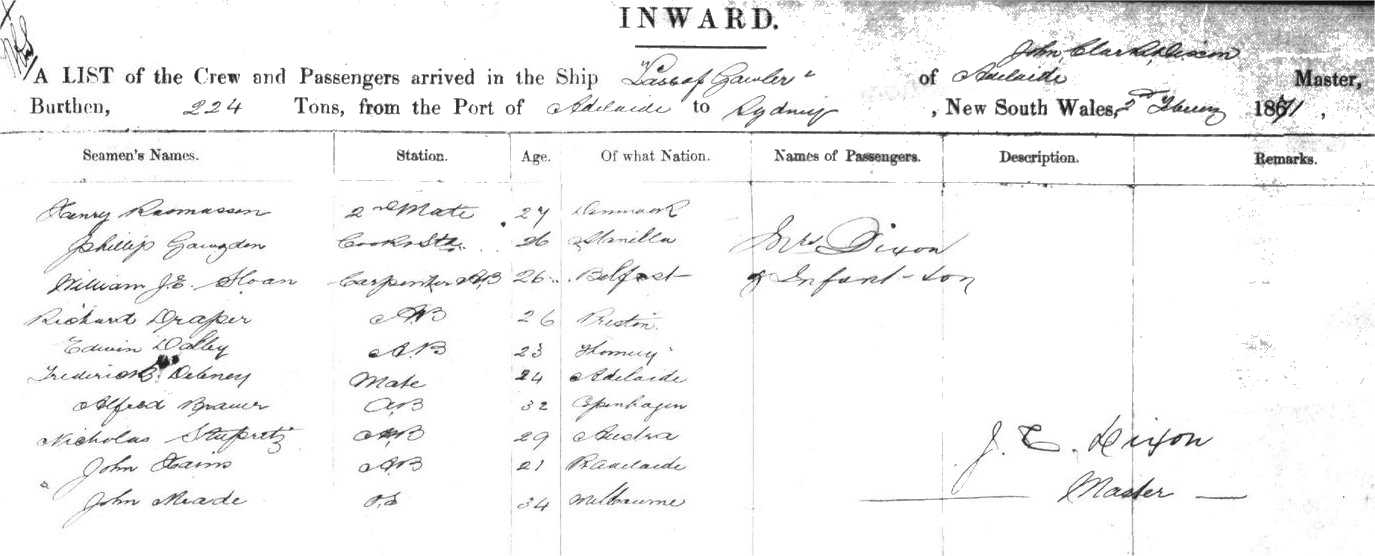 INWARD.
John Clark Dixon
A LIST of the Crew and Passengers arrived in the Ship "Lass of Gawler" of Adelaide Master,
Burthen, 224 Tons, from the Port of Adelaide to Sydney, New South Wales, 2nd 1871,
Seamen's Names. Station. Age. Of what Nation. Names of Passengers. Description. Remarks.
Henry Rasmassen 2nd Mate 27 Denmark
Phillip 26 Manilla Mrs Dixon
William J.E. Sloan Carpenter AB 26 Belfast & Infant-son
Richard Draper AB 26 Preston
Edwin Dalley AB 23
Frederick Debney Mate 24 Adelaide
Alfred Brauer AB 32 Copenhagen
Nicholas AB 29 Austria
John Hains AB 21 Pt Adelaide
John Meade OS 34 Melbourne
J. C. Dixon
Master